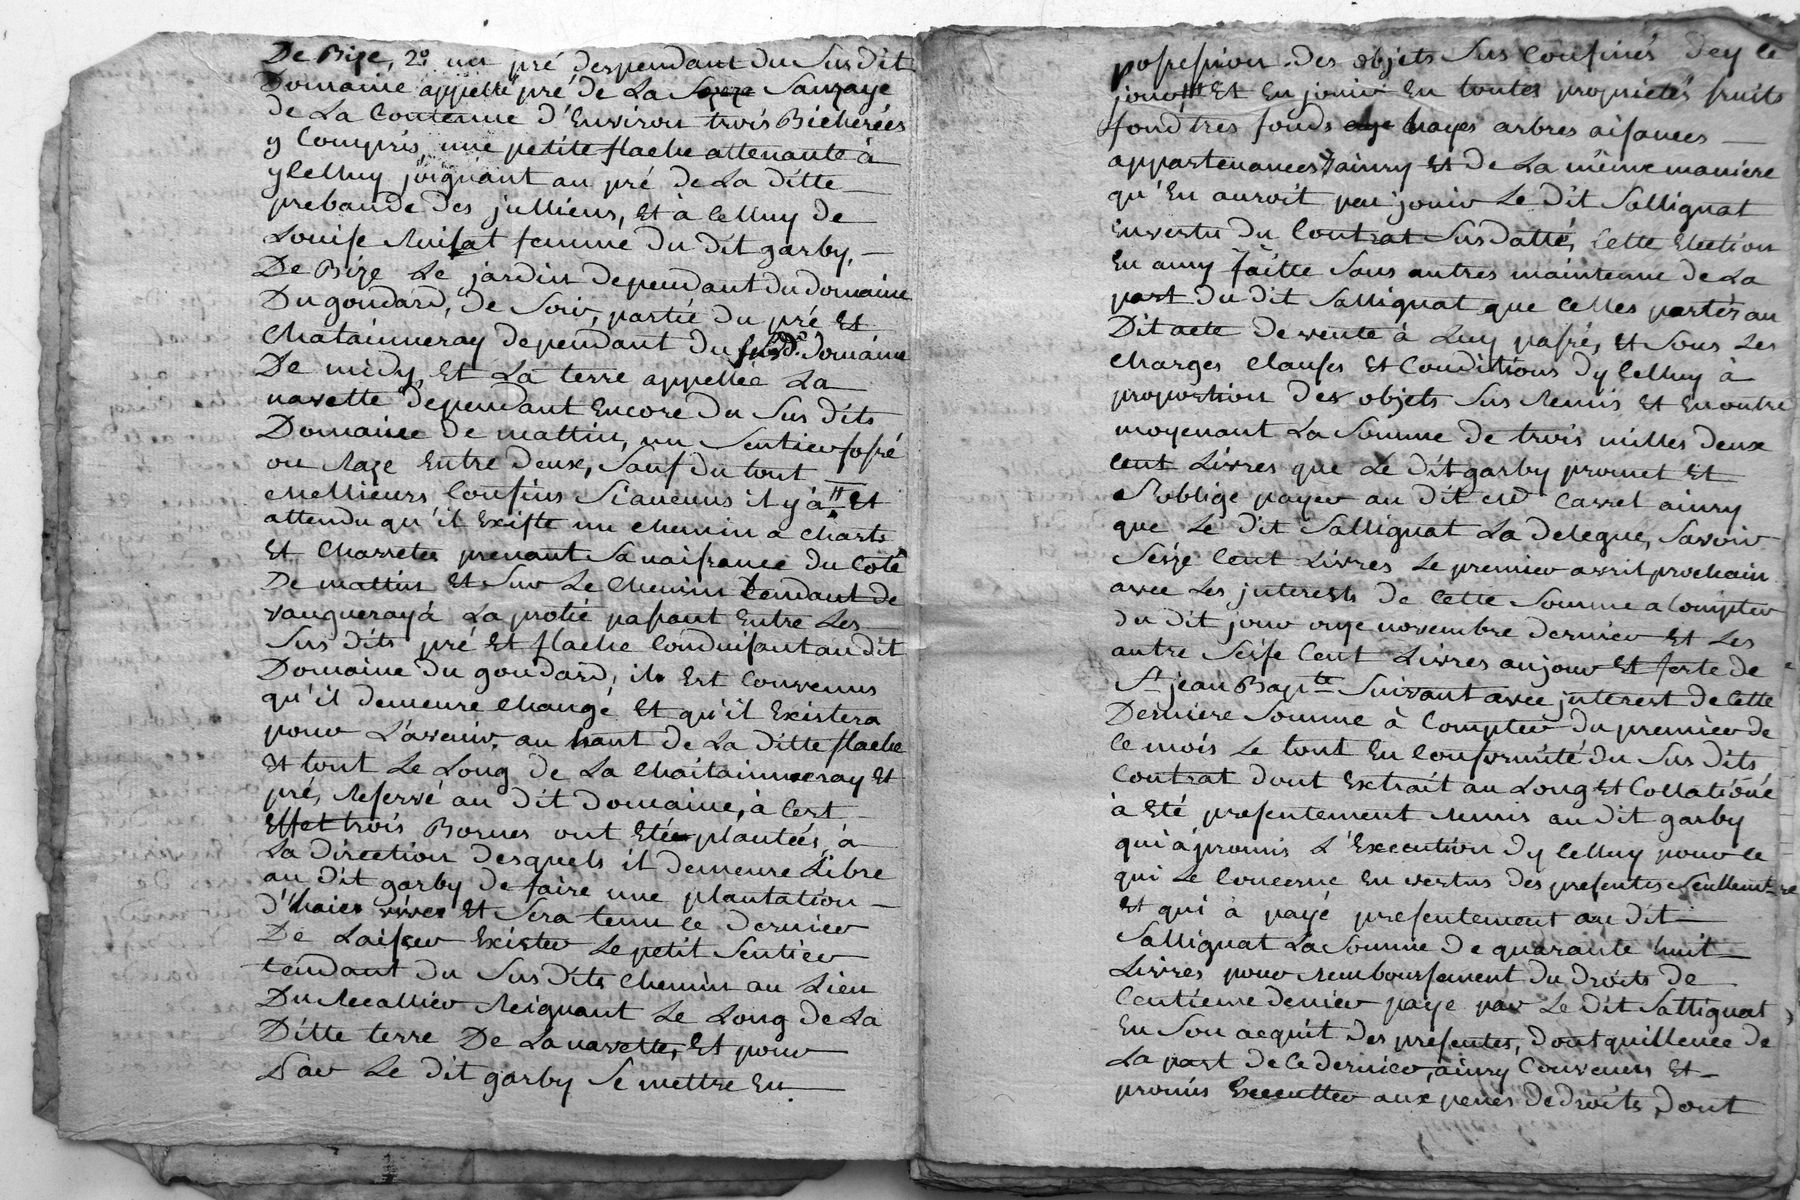 De Bize, 2° un pré despendant du Susdit
Domaine appellé pré de La Sauzaye
de La Contenue d'Environ trois Bicherées
y Compris une petite flache attenante à
ycelluy joignant au pré de La ditte
prebande des julliens, Et à Celluy de
Louise femme du dit garby,
De Bize Le jardin dependant du domaine
Du goudard, de Soir, partie du pré Et
Chatainneray dependant du susd. Domaine
De midy, Et La terre appellée La
navette dependant Encore du Sus dits
Domaine de mattin, un Sentier fossé
ou Raze Entre deux, Sauf du tout
Mellieurs Confins Siaucuns il y à Et
attendu qu'il Existe un chemin a chards
Et Charrettes prenant Sa naissance du Coté
De mattin Et Sur Le Chemin tendant de
vaugneray à La passant Entre Les
Sus dits pré Et flache Conduisant au dit
Domaine du goudard, il Est Convenus
qu'il demeure Changé Et qu'il Existera
pour L'avenir, au haut de La ditte flache
Et tout Le Long de La Chaitainneray Et
pré, Reservé au dit Domaine, à Cest
Effet trois Bornes ont Eté plantées, à
La direction desquels il demeure Libre
au dit garby de faire une plantation
d'haies vives Et Sera tenu ce dernier
De Laisser Exister Le petit Sentier
tendant du Sus dits Chemin au Lieu
Du Recallier Reignant Le Long de La
Ditte terre De La navette, Et pour
Par Le dit garby Se mettre En
possession des objets Sus Confinés dey ce
jourd'huy Et En jouir En toutes proprietés fruits
fond tres fonds hayes arbres aisances
appartenances ainsy Et de La même maniere
qu'En auroit peu jouir Le Dit Sallignat
En vertu du Contrat Sus datté, Cette Election
En amy faitte Sans autres maintenue de La
part du dit Sallignat que Celles portés au
Dit acte de vente à Luy passé, Et Sous Les
Charges clauses Et Conditions dy Celluy à
proportion des objets Sus Remis Et En outre
moyenant La Somme de trois milles deux
Cent Livres que Le dit garby promet Et
S'oblige payer au dit Carret ainsy
que Le dit Sallignat La delegue, Savoir
Seize Cent Livres Le premier avril prochain
avec Les jnterests de Cette Somme a Compter
du dit jour onze novembre dernier Et Les
autre Seise Cent Livres au jour Et feste de
St jean Bapte Suivant avec jnterest de Cette
Derniere Somme à Compter du premier de
Ce mois Le tout En Conformité du Sus dits
Contrat dont Extrait au Long Et Collationé
à Eté presentement Remis au dit garby
qui à promis L'Execution dy Celluy pour ce
qui Le Concerne En vertus des presentes Seullemt
Et qui à payé presentement au dit
Sallignat La Somme de quarante huit
Livres pour Remboursement du droits de
Centieme denier paye par Le dit Sallignat
En Son acquit des presentes, dont quillence de
La part de Ce dernier, ainsy Convenus Et
promis Executter aux penes de droits, dont